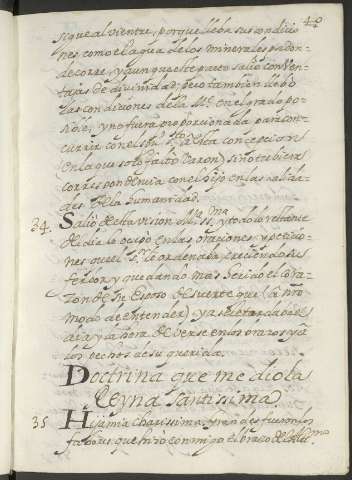 40
sigue al vientre, porque lleba sus condicio-
nes como el agua de los minerales por don-
de corre, y aunque este parto salio con ven-
tajas de divinidad; pero tambien llebó
las condiciones de la Me. en el grado po-
sible, y no fuera proporcionada para con-
currir con el Espu. Sto. a esta concepcion
en la que solo faltó varon, si no tubiera
correspondencia con el hijo en las calida-
des de la humanidad.
34. Salio de esta vision Ma. Sma. y todo lo restante
de el dia lo ocupó en las oraciones, y peticio-
nes que el Sr. le ordenaba creciendo su
ferbor, y quedando mas herido el cora-
zon de su Esposo de suerte que (a nro
modo de entender) ya se le tardaba el
dia, y la hora de berse en los brazos, y a
los pechos de su querida.
Doctrina que me dio la
Reyna Santissima.
35 Hija mia charissima. Grandes fueron los
fabores que hizo conmigo el brazo de el Altmo.